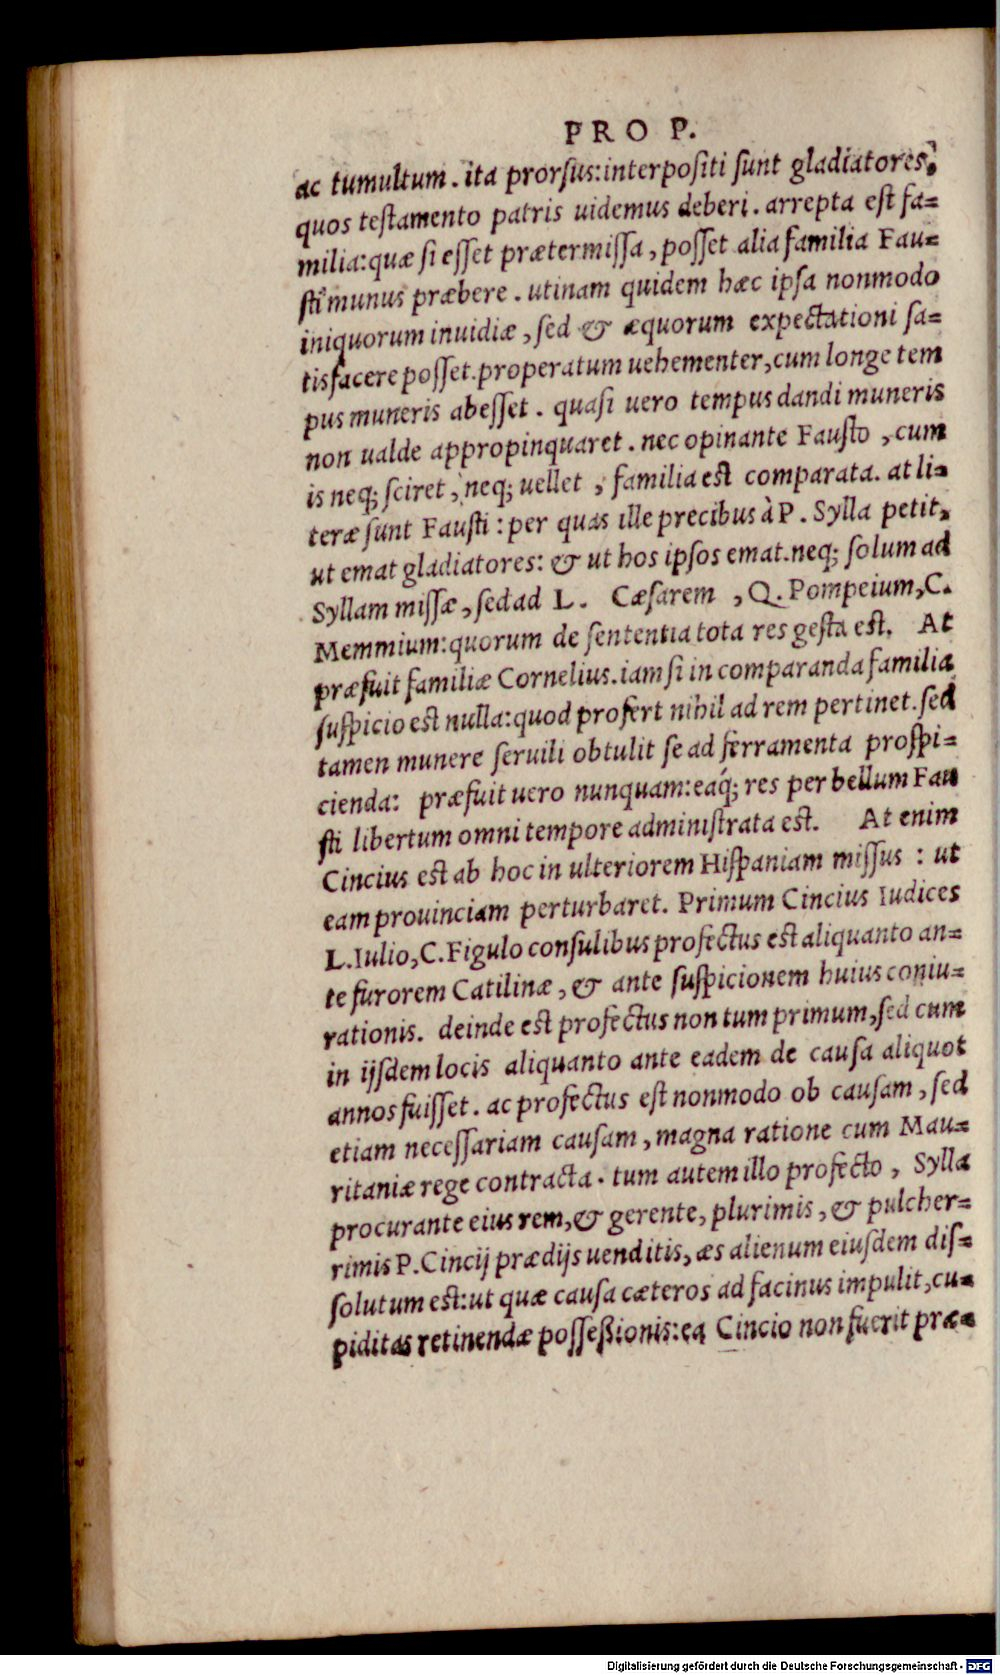 PRO P.
ac tumultum. ita prorsus: interpositi sunt gladiatores,
quos testamento patris uidemus deberi. arrepta est fa=
milia: quæ si esset prætermissa, posset alia familia Fau=
sti munus præbere. utinam quidem hæc ipsa nonmodo
iniquorum inuidiæ, sed & æquorum expectationi sa=
tisfacere posset. properatum uehementer, cum longe tem
pus muneris abesset. quasi uero tempus dandi muneris
non ualde appropinquaret. nec opinante Fausto, cum
is neq; sciret, neq; uellet, familia est comparata. at li=
teræ sunt Fausti: per quas ille precibus à P. Sylla petit,
ut emat gladiatores: & ut hos ipsos emat. neq; solum ad
Syllam missæ, sed ad L. Cæsarem, Q. Pompeium, C.
Memmium: quorum de sententia tota res gesta est. At
præfuit familiæ Cornelius. iam si in comparanda familia
suspicio est nulla: quod profert nihil ad rem pertinet. sed
tamen munere seruili obtulit se ad ferramenta prospi=
cienda: præfuit uero nunquam: eáq; res per bellum Fau
sti libertum omni tempore administrata est. At enim
Cincius est ab hoc in ulteriorem Hispaniam missus: ut
eam prouinciam perturbaret. Primum Cincius Iudices
L. Iulio, C. Figulo consulibus profectus est aliquanto an=
te furorem Catilinæ, & ante suspicionem huius coniu=
rationis. deinde est profectus non tum primum, sed cum
in ijsdem locis aliquanto ante eadem de causa aliquot
annos fuisset. ac profectus est nonmodo ob causam, sed
etiam necessariam causam, magna ratione cum Mau=
ritaniæ rege contracta. tum autem illo profecto, Sylla
procurante eius rem, & gerente, plurimis, & pulcher=
rimis P. Cincij prædijs uenditis, æs alienum eiusdem dis=
solutum est: ut quæ causa cæteros ad facinus impulit, cu=
piditas retinendæ possessionis: ea Cincio non fuerit præ=
Digitalisierung gefördert durch die Deutsche Forschungsgemeinschaft - DFG